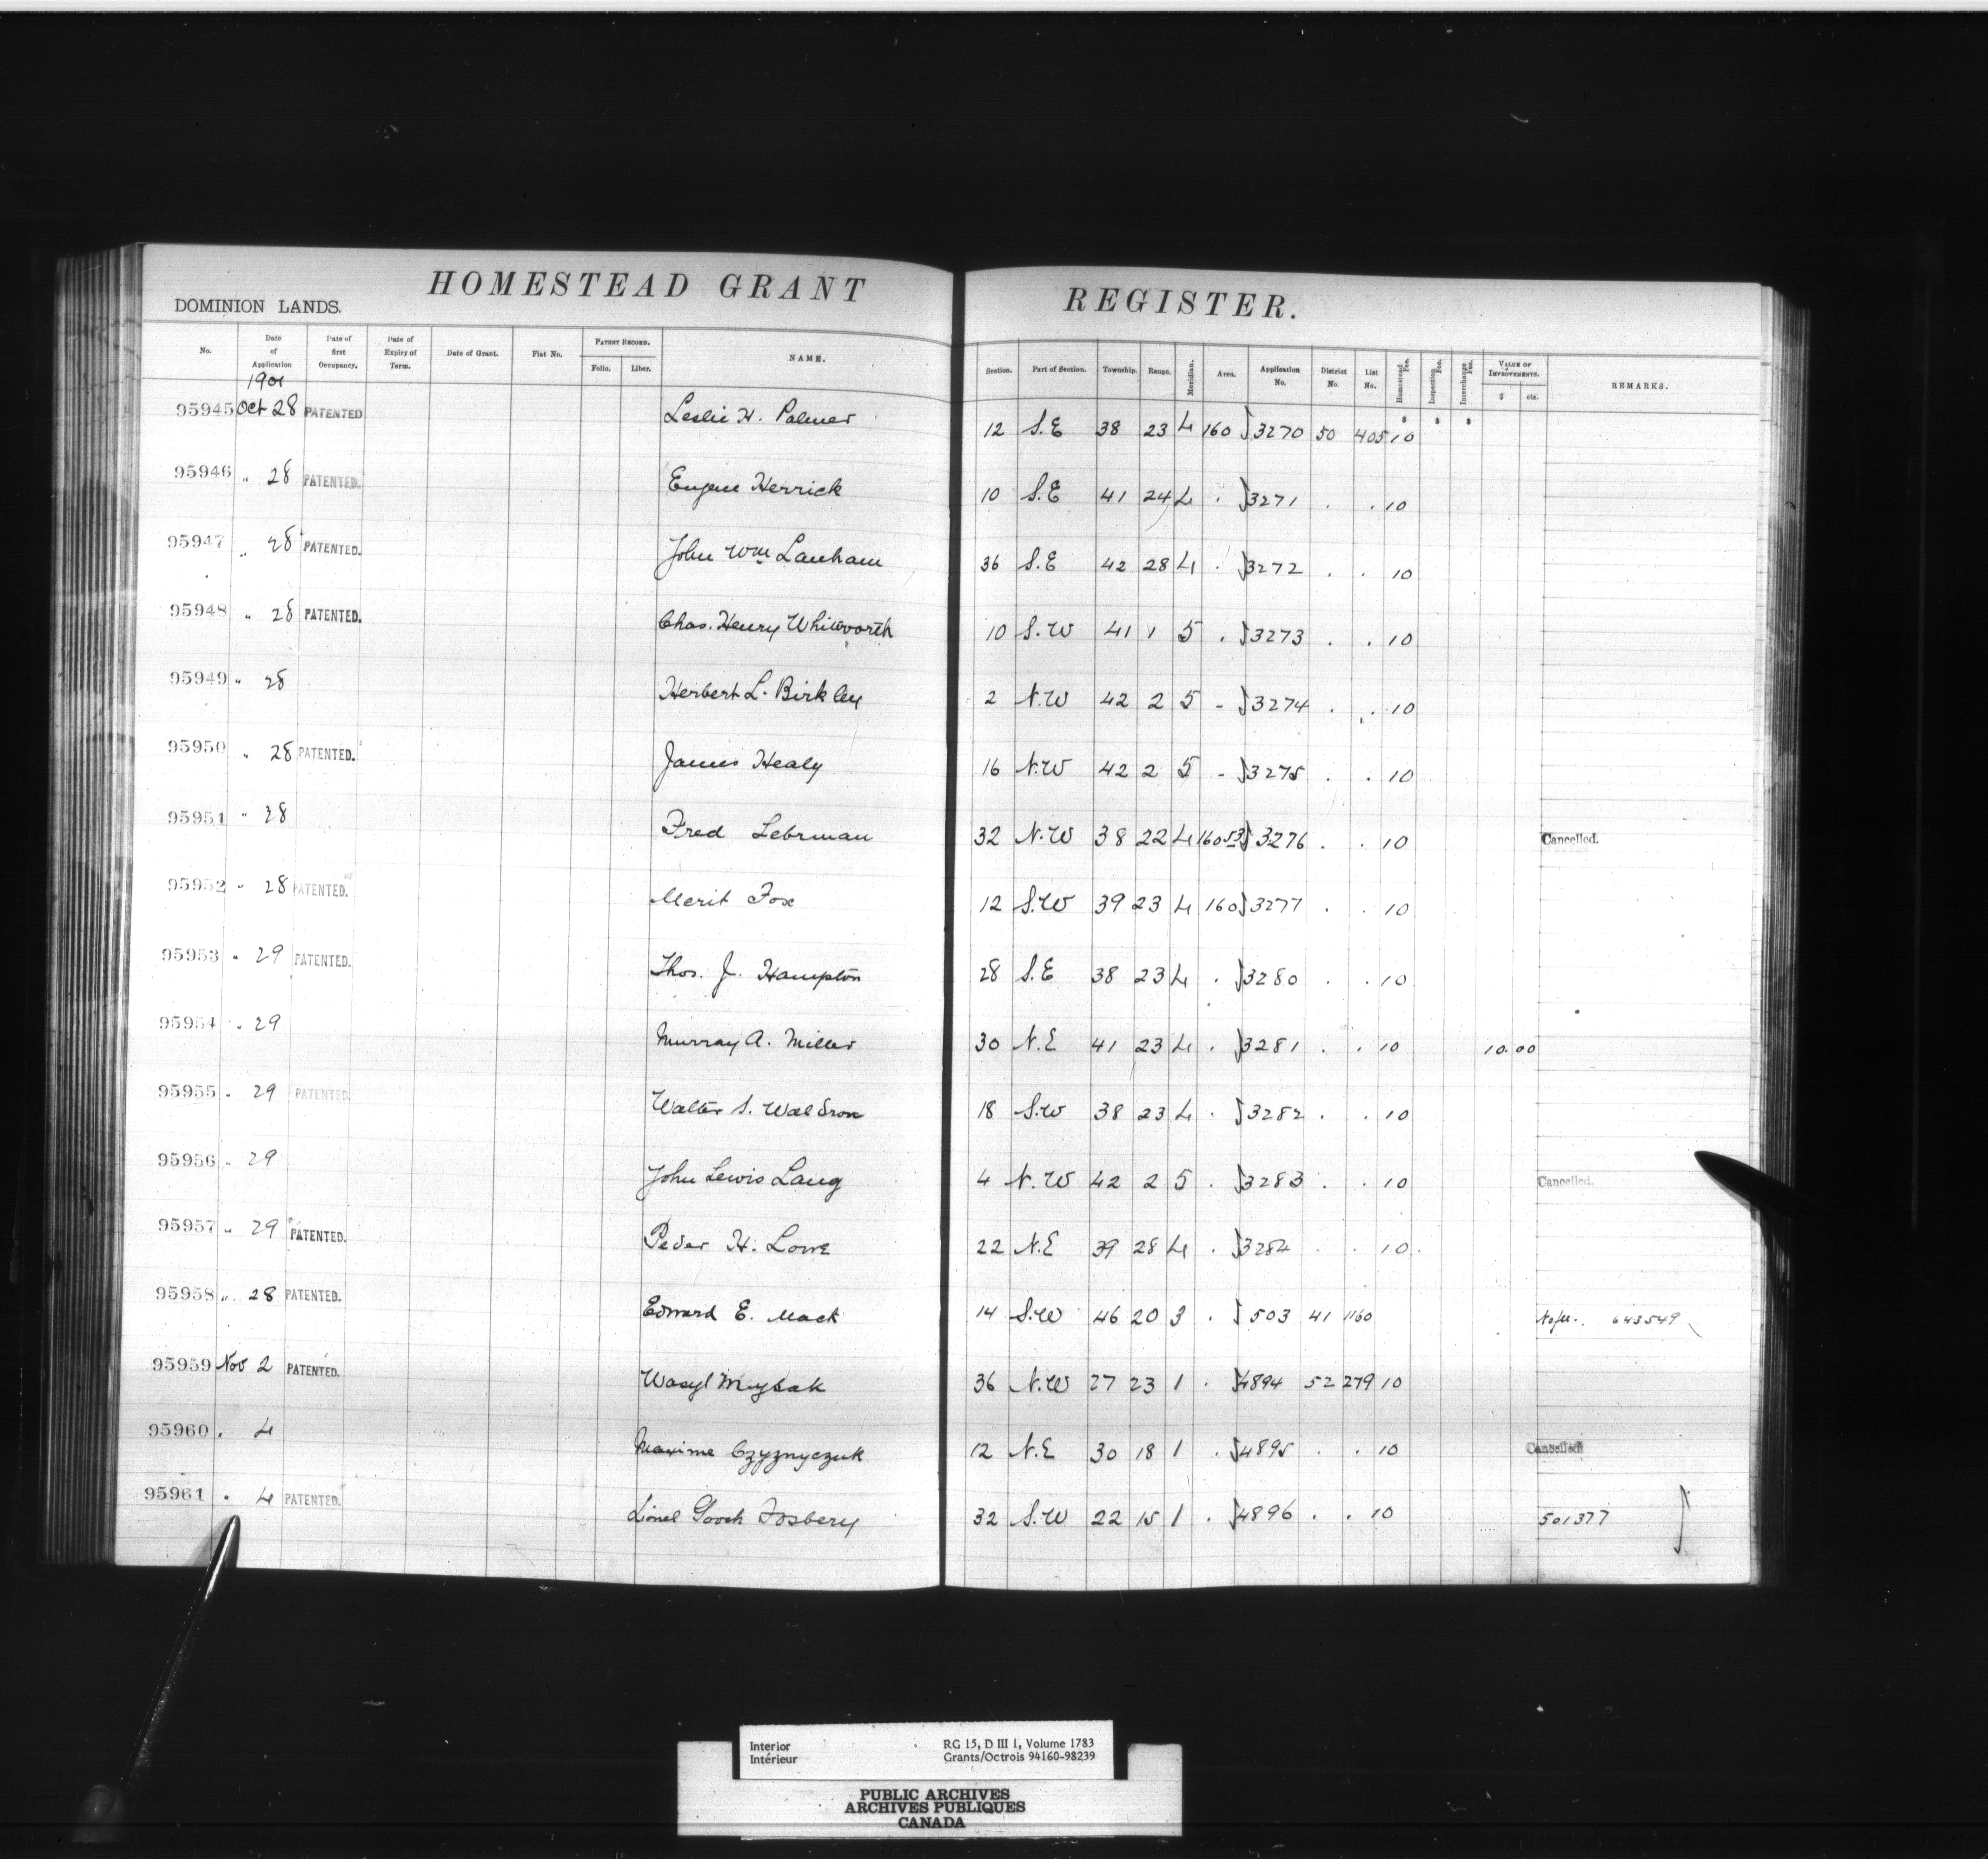 HOMESTEAD GRANT REGISTER.
DOMINION LANDS.
No. Date of Application Date of first Occupancy. Date of Expiry of Term. Date of Grant. Fiat No. PATENT RECORD. Folio. Liber. NAME. Section. Part of Section. Township. Range. Meridian. Area. Application No. District No. List No. Homestead Fee. Inspection Fee. Interchange Fee. VALUE OF IMPROVEMENTS. $ cts. REMARKS.
1901
95945 Oct 28 PATENTED Leslie H. Palmer 12 S.E 38 23 4 160 3270 50 405 10
95946 " 28 PATENTED. Eugene Herrick 10 S.E 41 24 4 . 3271 . . 10
95947 " 28 PATENTED. John Wm Lanham 36 S.E 42 28 4 . 3272 . . 10
95948 " 28 PATENTED. Chas. Henry Whitworth 10 S.W 41 1 5 . 3273 . . 10
95949 " 28 Herbert L. Birkley 2 N.W 42 2 5 - 3274 . . 10
95950 " 28 PATENTED. James Healy 16 N.W 42 2 5 - 3275 . . 10
95951 " 28 Fred Lebrman 32 N.W 38 22 4 160.53 3276 . . 10 Cancelled.
95952 " 28 PATENTED. Merit Fox 12 S.W 39 23 4 160 3277 . . 10
95953 " 29 PATENTED. Thos. J. Hampton 28 S.E 38 23 4 . 3280 . . 10
95954 " 29 Murray A. Miller 30 N.E 41 23 4 . 3281 . . 10 10.00
95955 " 29 PATENTED Walter S. Waldron 18 S.W 38 23 4 . 3282 . . 10
95956 " 29 John Lewis Lang 4 N.W 42 2 5 . 3283 . . 10 Cancelled.
95957 " 29 PATENTED. Peder H. Lowe 22 N.E 39 28 4 . 3284 . . 10.
95958 " 28 PATENTED. Edward E. Mack 14 S.W 46 20 3 . 503 41 1160 643549
95959 Nov 2 PATENTED. Wasyl 36 N.W 27 23 1 . 4894 52 279 10
95960 . 4 Maxime Czyznyczuk 12 N.E 30 18 1 . 4895 . . 10 Cancelled
95961 . 4 PATENTED. Lionel Gooch Fosbery 32 S.W 22 15 1 . 4896 . . 10 501377
Interior RG 15, D III 1, Volume 1783
Intérieur Grants/Octrois 94160-98239
PUBLIC ARCHIVES
ARCHIVES PUBLIQUES
CANADA